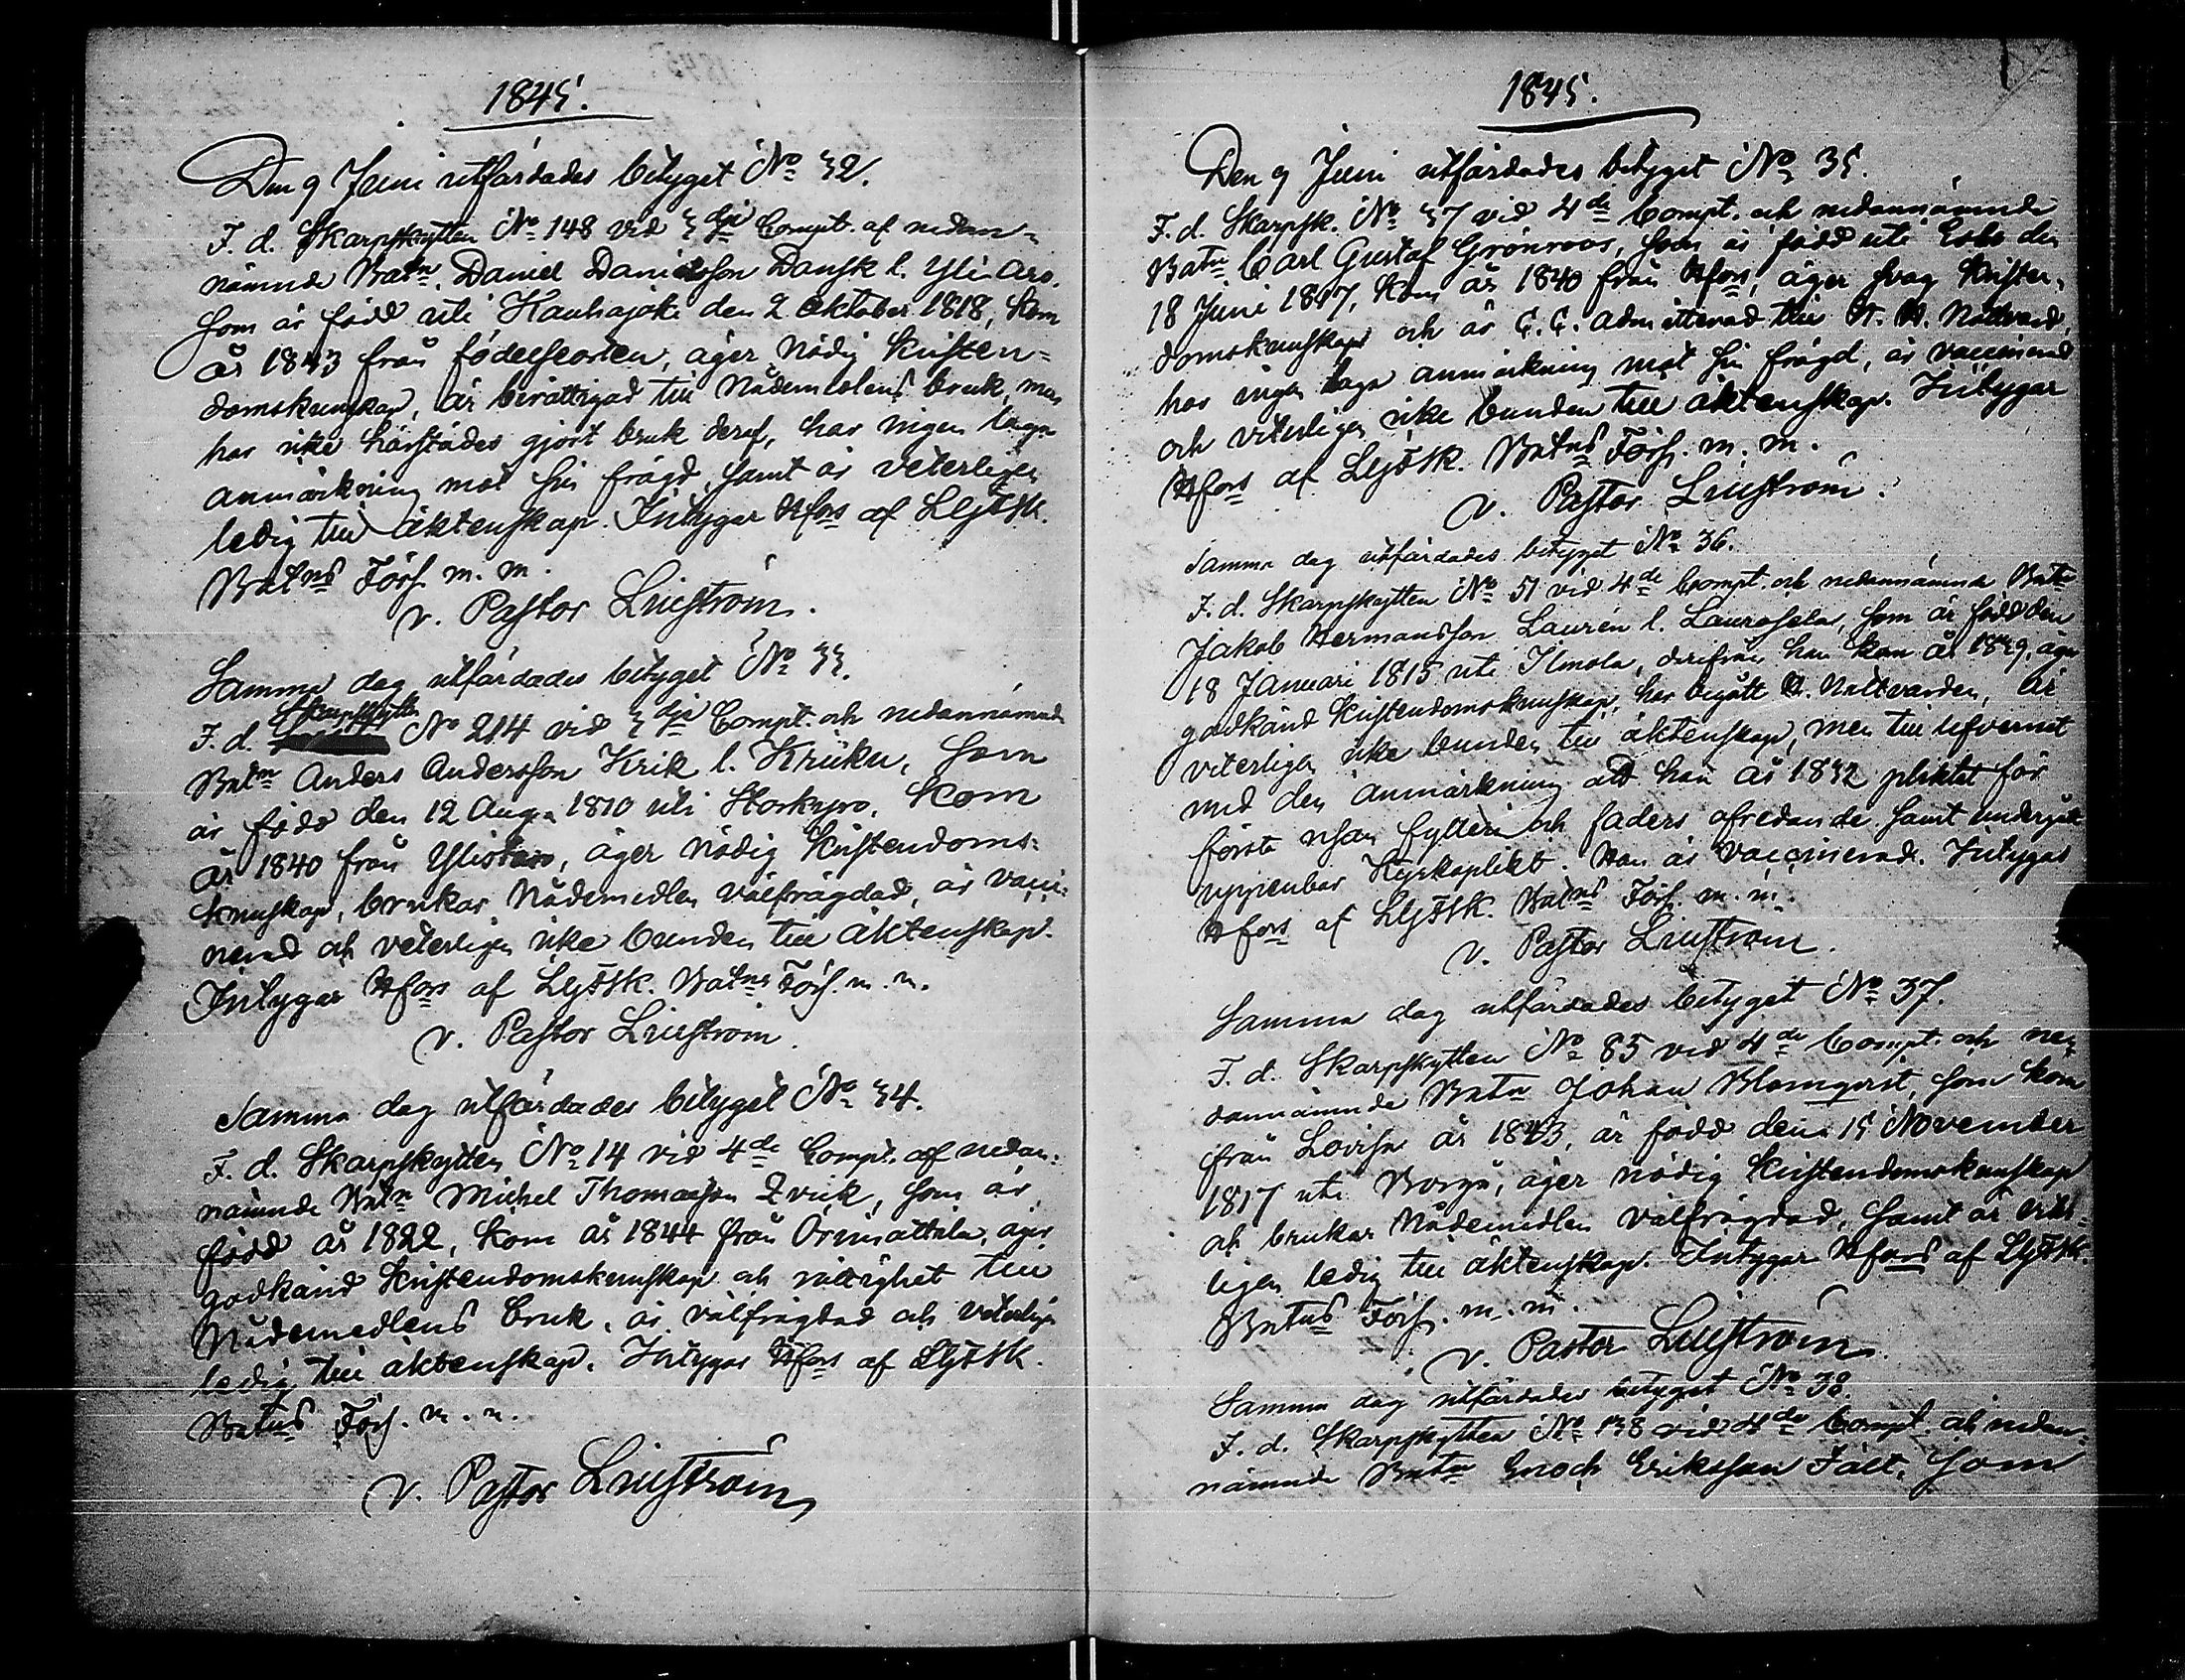 1845.
Den 9 Juni utfärdades betyget No 32.
F. d. Skarpskytten No 148 vid 3dje Compt. af nedan-
nämnde Batn. Daniel Danielsson Dansk l. Yli-Aro.
som är född uti Kauhajoki den 2 Oktober 1818, kom
år 1843 från födelseorten, äger nödig Kristen-
domskunskap, är berättigad till Nådemedlens bruk, men
har icke härstädes gjort bruk deraf, har ingen laga
anmärkning mot sin frägd, samt är veterligen
ledig till äktenskap. Intygar Hfors af LGFSK.
Batns Förs. m. m.
v. Pastor
Samma dag utfärdades betyget No 33.
F. d. Skarpskytten No 214 vid 3dje Compt. och nedannämnde
Batn Anders Andersson Krik l. Kriiku, som
är född den 12 Aug. 1810 uti Storkyro, kom
år 1840 från Ylistaro, äger nödig Kristendoms-
kunskap, brukar Nådemedlen välfrägdad, är vacci-
nerad och veterligen icke bunden till äktenskap.
Intygar Hfors af LGFSK. Batns Förs. m. m.
v. Pastor
Samma dag utfärdades betyget No 34.
F. d. Skarpskytten No 14 vid 4de Compt. af nedan-
nämnde Batn Michel Thomasson Qvick, som är
född år 1822, kom år 1844 från Orimattila, äger
godkänd Kristendomskunskap och rättighet till
Nådemedlens bruk, är välfrägdad och veterligen
ledig till äktenskap. Intygar Hfors af LGFSK.
Batns Förs. m. m.
v. Pastor
1845.
Den 9 Juni utfärdades betyget No 35.
F. d. Skarpsk. No 37 vid 4de Compt. och nedannämnde
Batn Carl Gustaf Grönroos, som är född uti Esbo den
18 Juni 1817, kom år 1840 från Hfors, äger svag Kristen-
domskunskap och är admitterad till H. H. Nattvard,
har ingen laga anmärkning mot sin frägd, är vaccinerad
och veterligen icke bunden till äktenskap. Intygar
Hfors af LGFSK. Batns Förs. m. m.
v. Pastor
Samma dag utfärdades betyget No 36.
F. d. Skarpskytten No 51 vid 4de Compt. och nedannämnde Batn
Jakob Hermansson Laurén l. Laurosela, som är född den
18 Januari 1815 uti Ilmola, derifrån han kom år 1839, äger
godkänd Kristendomskunskap, har begått H. Nattvarden, är
veterligen icke bunden till äktenskap, men till lefvernet
med den anmärkning att han år 1832 pliktat för
första resan fylleri och faders ofredande samt undergått
uppenbar Kyrkoplikt. Han är vaccinerad. Intygar
Hfors af LGFSK. Batns Förs. m. m.
v. Pastor
Samma dag utfärdades betyget No 37.
F. d. Skarpskytten No 85 vid 4de Compt. och ne-
dannämnde Batn Johan Blomqvist, som kom
från Lovisa år 1843, är född den 15 November
1817 uti Borgå, äger nödig Kristendomskunskap
och brukar Nådemedlen välfrägdad, samt är veter-
ligen ledig till äktenskap. Intygar Hfors af LGFSK.
Batns Förs. m. m.
v. Pastor
Samma dag utfärdades betyget No 38.
F. d. Skarpskytten No 138 vid 4de Compt. och nedan-
nämnde Batn Enoch Eriksson som